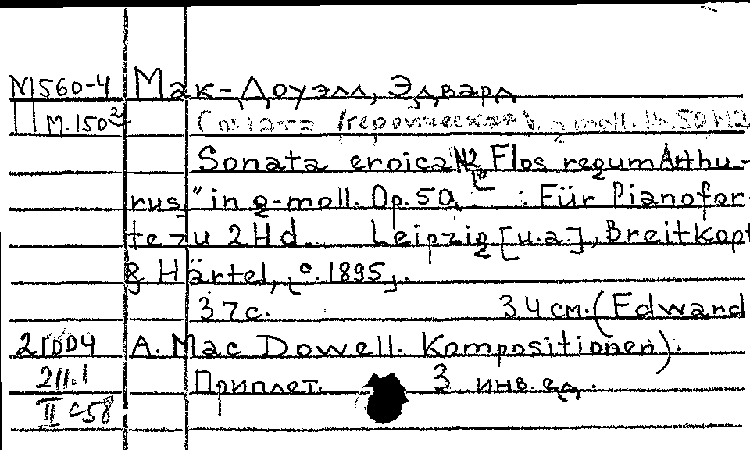 М560-4 Мак-Доуэлл, Эдвард
М.150² Соната (героическая), g-moll. Ор.50 №2
Sonata eroica №2 "Flos regum Arthu-
rus" in g-moll. Op. 50. : Für Pianofor-
te zu 2 Hd. Leipzig [u.a.], Breitkopf
& Härtel, [c. 1895].
37 с. 34 см. (Edward
A. Mac Dowell. Kompositionen).
211.1 Приплет. 3 инв. ед.
II с58